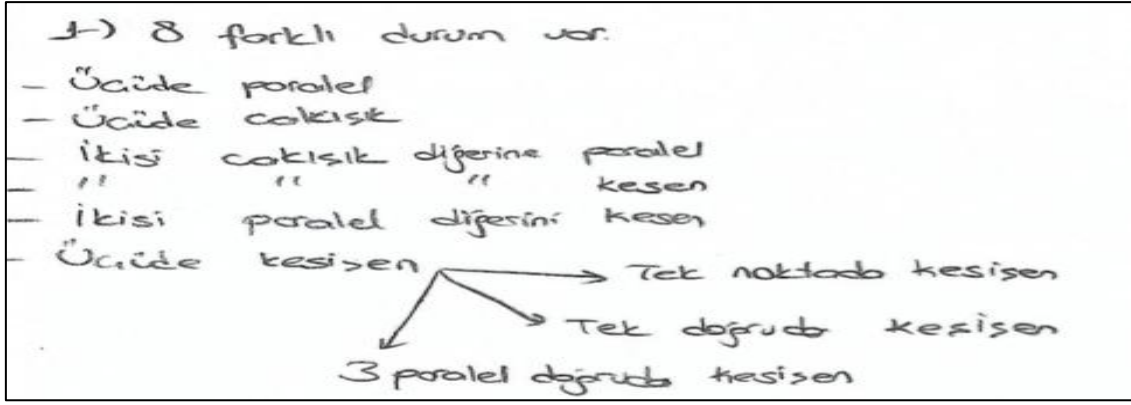 1-) 8 farklı durum var.
- Üçüde paralel
- Üçüde çakışık
- İkisi çakışık diğerine paralel
- " " " kesen
- İkisi paralel diğerini kesen
- Üçüde kesişen → Tek noktada kesişen
→ Tek doğruda kesişen
3 paralel doğruda kesişen